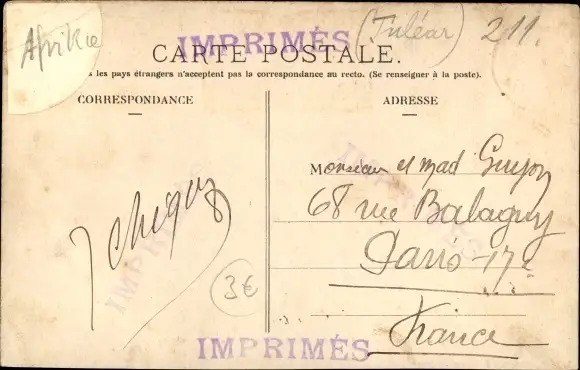 Afrikie
IMPRIMÉS
(Tuléar)
211.
CARTE POSTALE.
s les pays étrangers n'acceptent pas la correspondance au recto. (Se renseigner à la poste).
CORRESPONDANCE
ADRESSE
IMPRIMÉS
IMPRIMÉS
3€
Monsieur et mad Guyon
68 rue Balagny
Paris-17e
France
IMPRIMÉS